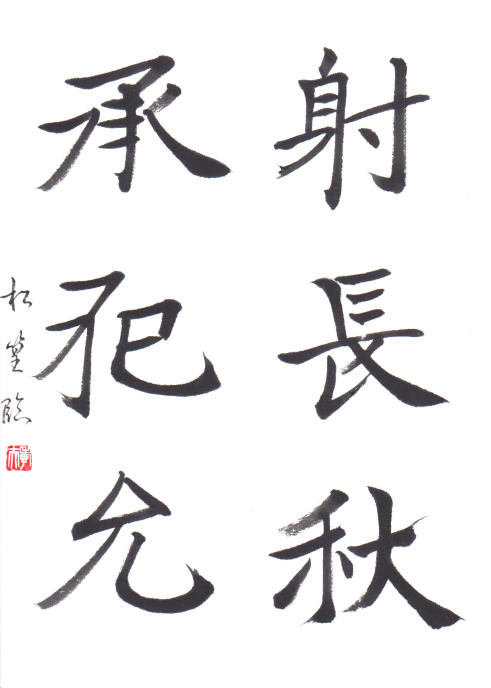 射長秋
承犯允
松 臨